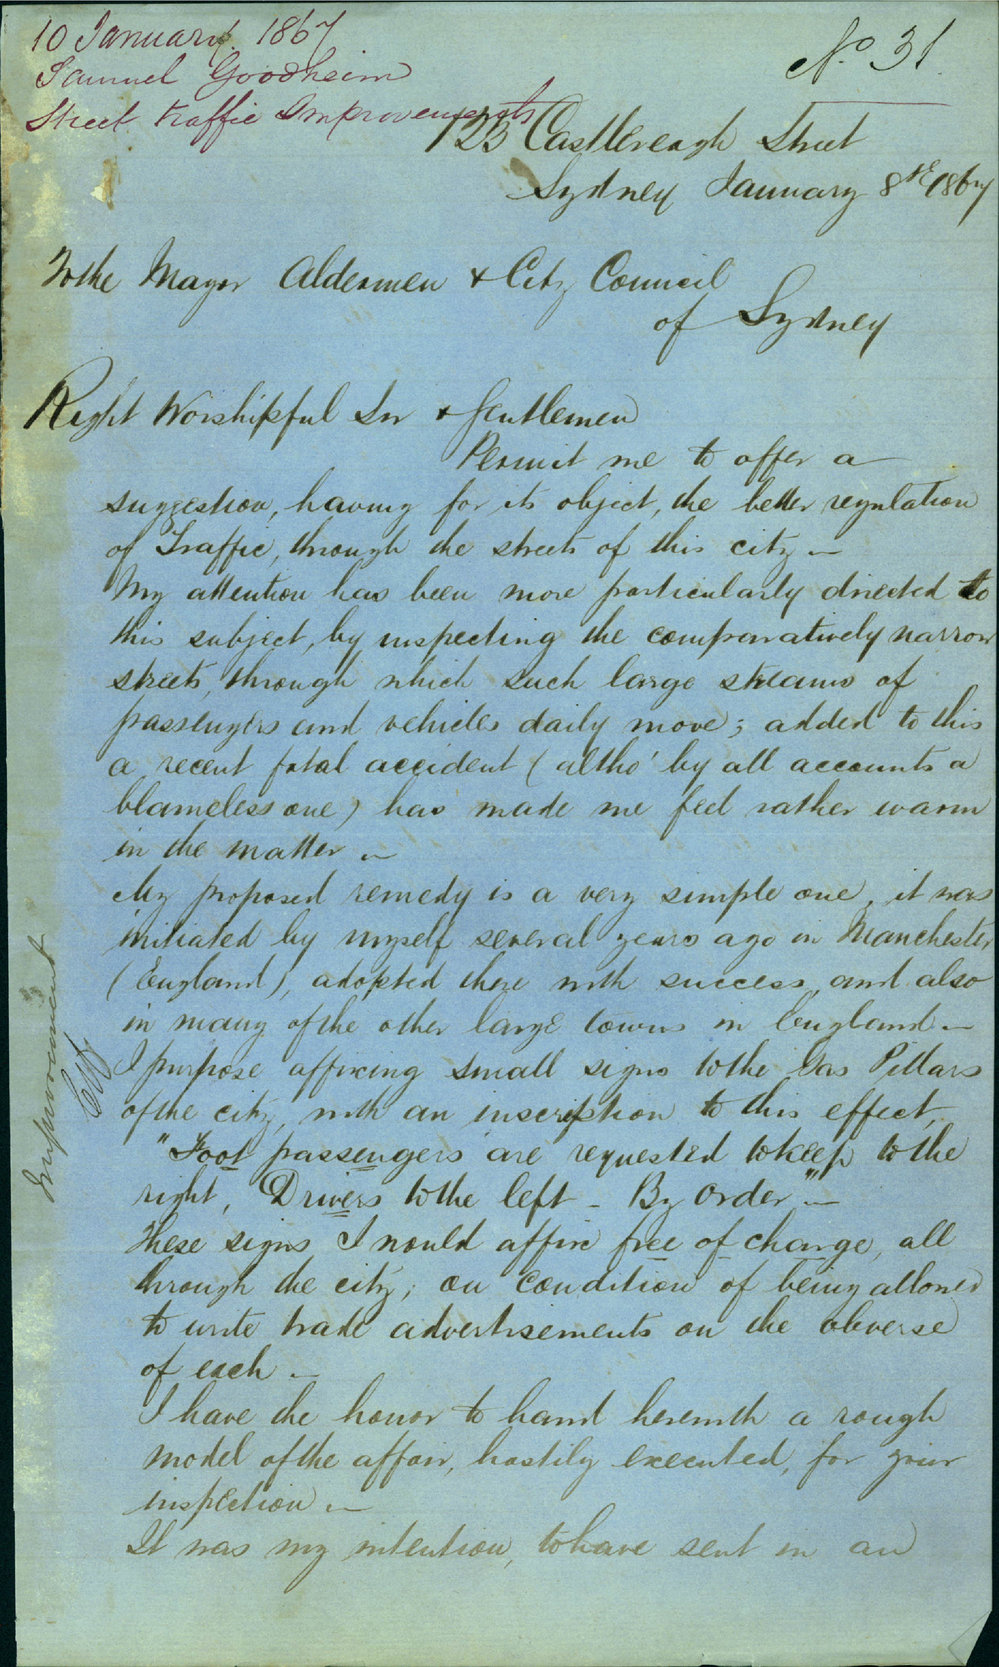 10 January 1867
Samuel Goodheim
Street traffic Improvements
No. 31
123 Castlereagh Street
Sydney January 8th 1867
To the Mayor Aldermen & City Council
of Sydney
Right Worshipful Sir & Gentlemen
Permit me to offer a
suggestion, having for its object, the better regulation
of Traffic, through the streets of this city —
My attention has been more particularly directed to
this subject, by inspecting the comparatively narrow
streets, through which such large streams of
passengers and vehicles daily move; added to this
a recent fatal accident (altho' by all accounts a
blameless one) has made me feel rather warm
in the matter —
My proposed remedy is a very simple one, it was
initiated by myself several years ago in Manchester
(England), adopted there with success, and also
in many of the other large towns in England —
I purpose affixing small signs to the Gas Pillars
of the city, with an inscription to this effect,
"Foot passengers are requested to keep to the
right, Drivers to the left - By Order" —
These signs I would affix free of charge, all
through the city; on condition of being allowed
to write trade advertisements on the obverse
of each —
I have the honor to hand herewith a rough
model of the affair, hastily executed, for your
inspection —
It was my intention, to have sent in an
Improvement
City